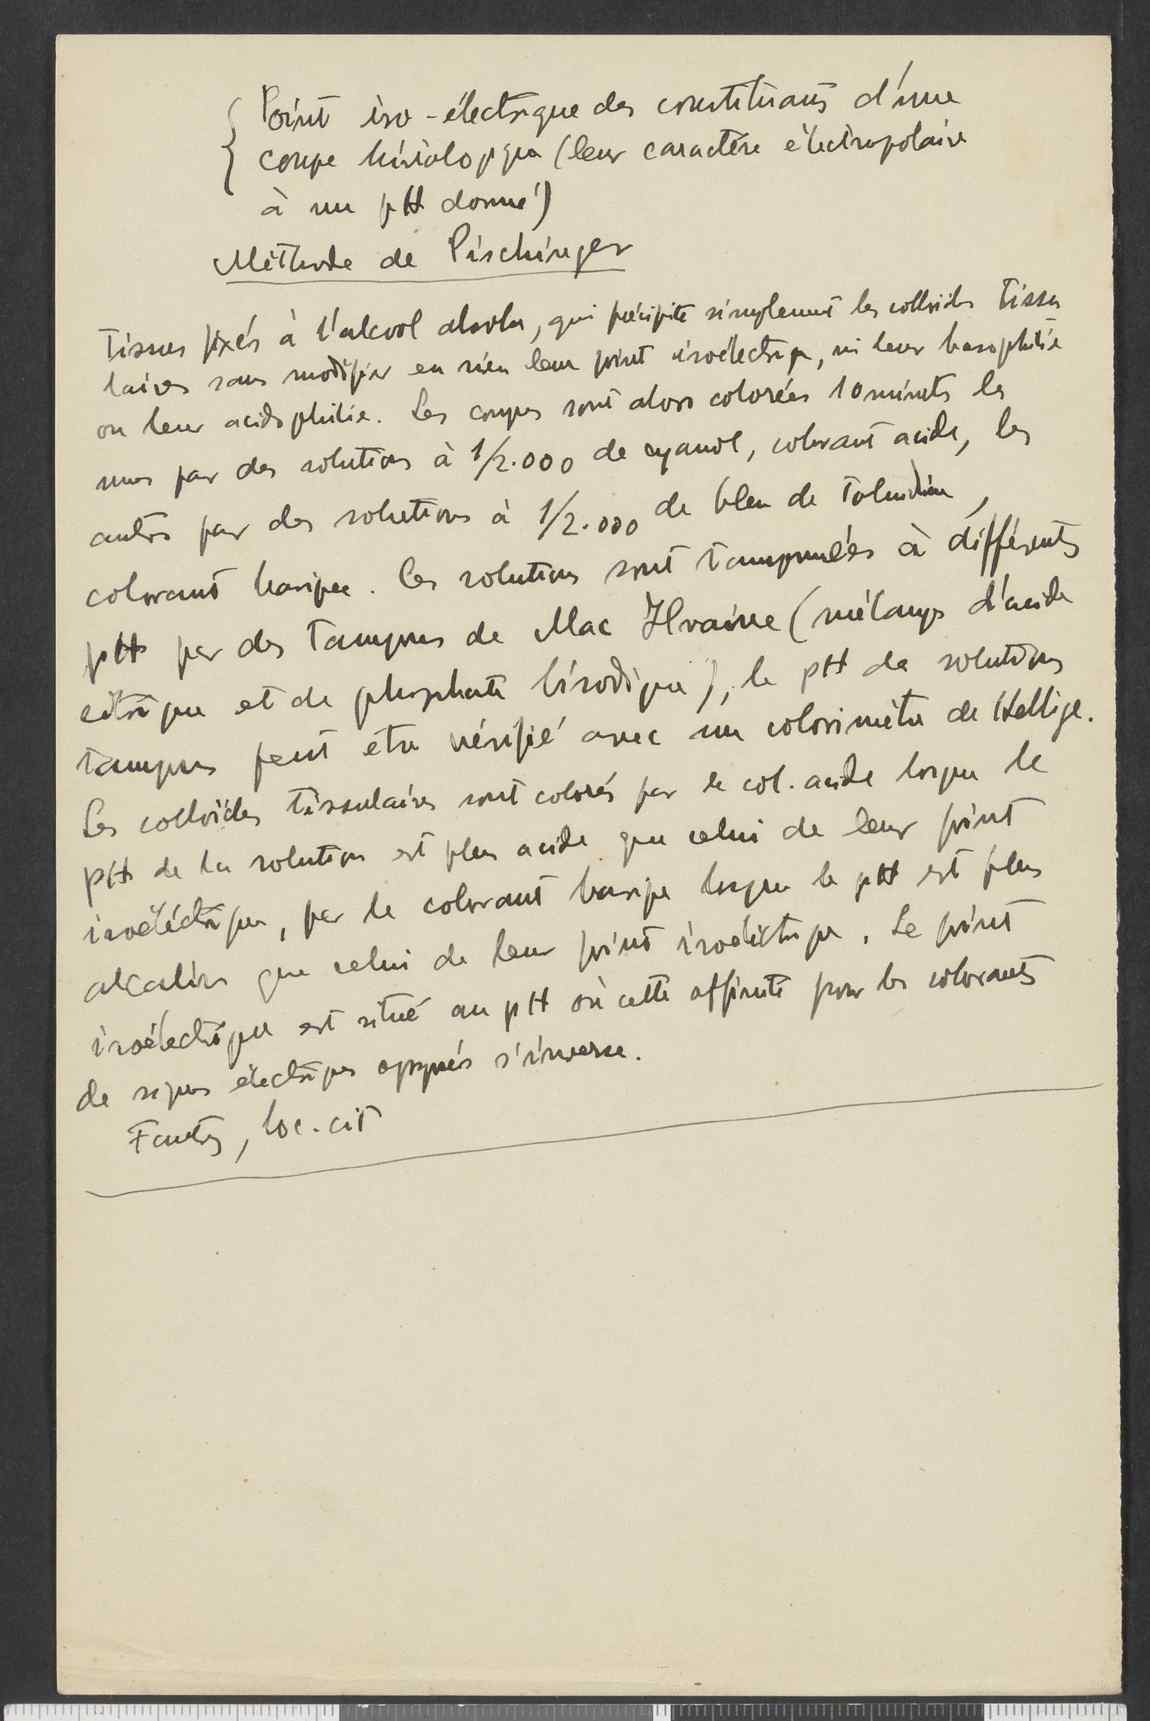 Point iso-électrique des constituants d'une
coupe histologique (leur caractère électropolaire
à un pH donné)
Méthode de Pischinger
Tissus fixés à l'alcool absolu, qui précipite simplement les colloïdes tissu
laires sans modifier en rien leur point isoélectrique, ni leur basophilie
ou leur acidophilie. Les coupes sont alors colorées 10 minutes les
unes par des solutions à 1/2.000 de cyanol, colorant acide, les
autres par des solutions à 1/2.000 de bleu de Toluidine,
colorant basique. Ces solutions sont tamponnées à différents
pH par des tampons de Mac Ilvaine (mélange d'acide
citrique et de phosphate bisodique), le pH de solutions
tampons peut etre vérifié avec un colorimètre de Hellige.
Les colloïdes tissulaires sont colorés par le col. acide lorsque le
pH de la solution est plus acide que celui de leur point
isoélectrique, par le colorant basique lorsque le pH est plus
alcalin que celui de leur point isoélectrique. Le point
isoélectrique est situé au pH où cette affinité pour les colorants
de signes électriques opposés s'inverse.
loc. cit